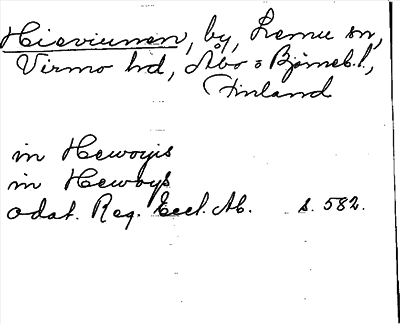 Hieviunen, by, Lemu sn,
Virmo hd, Åbo o Björneb. l.,
Finland
in Hewoyis
in Hewoys
odat. Reg. Eccl. Ab. s. 582.